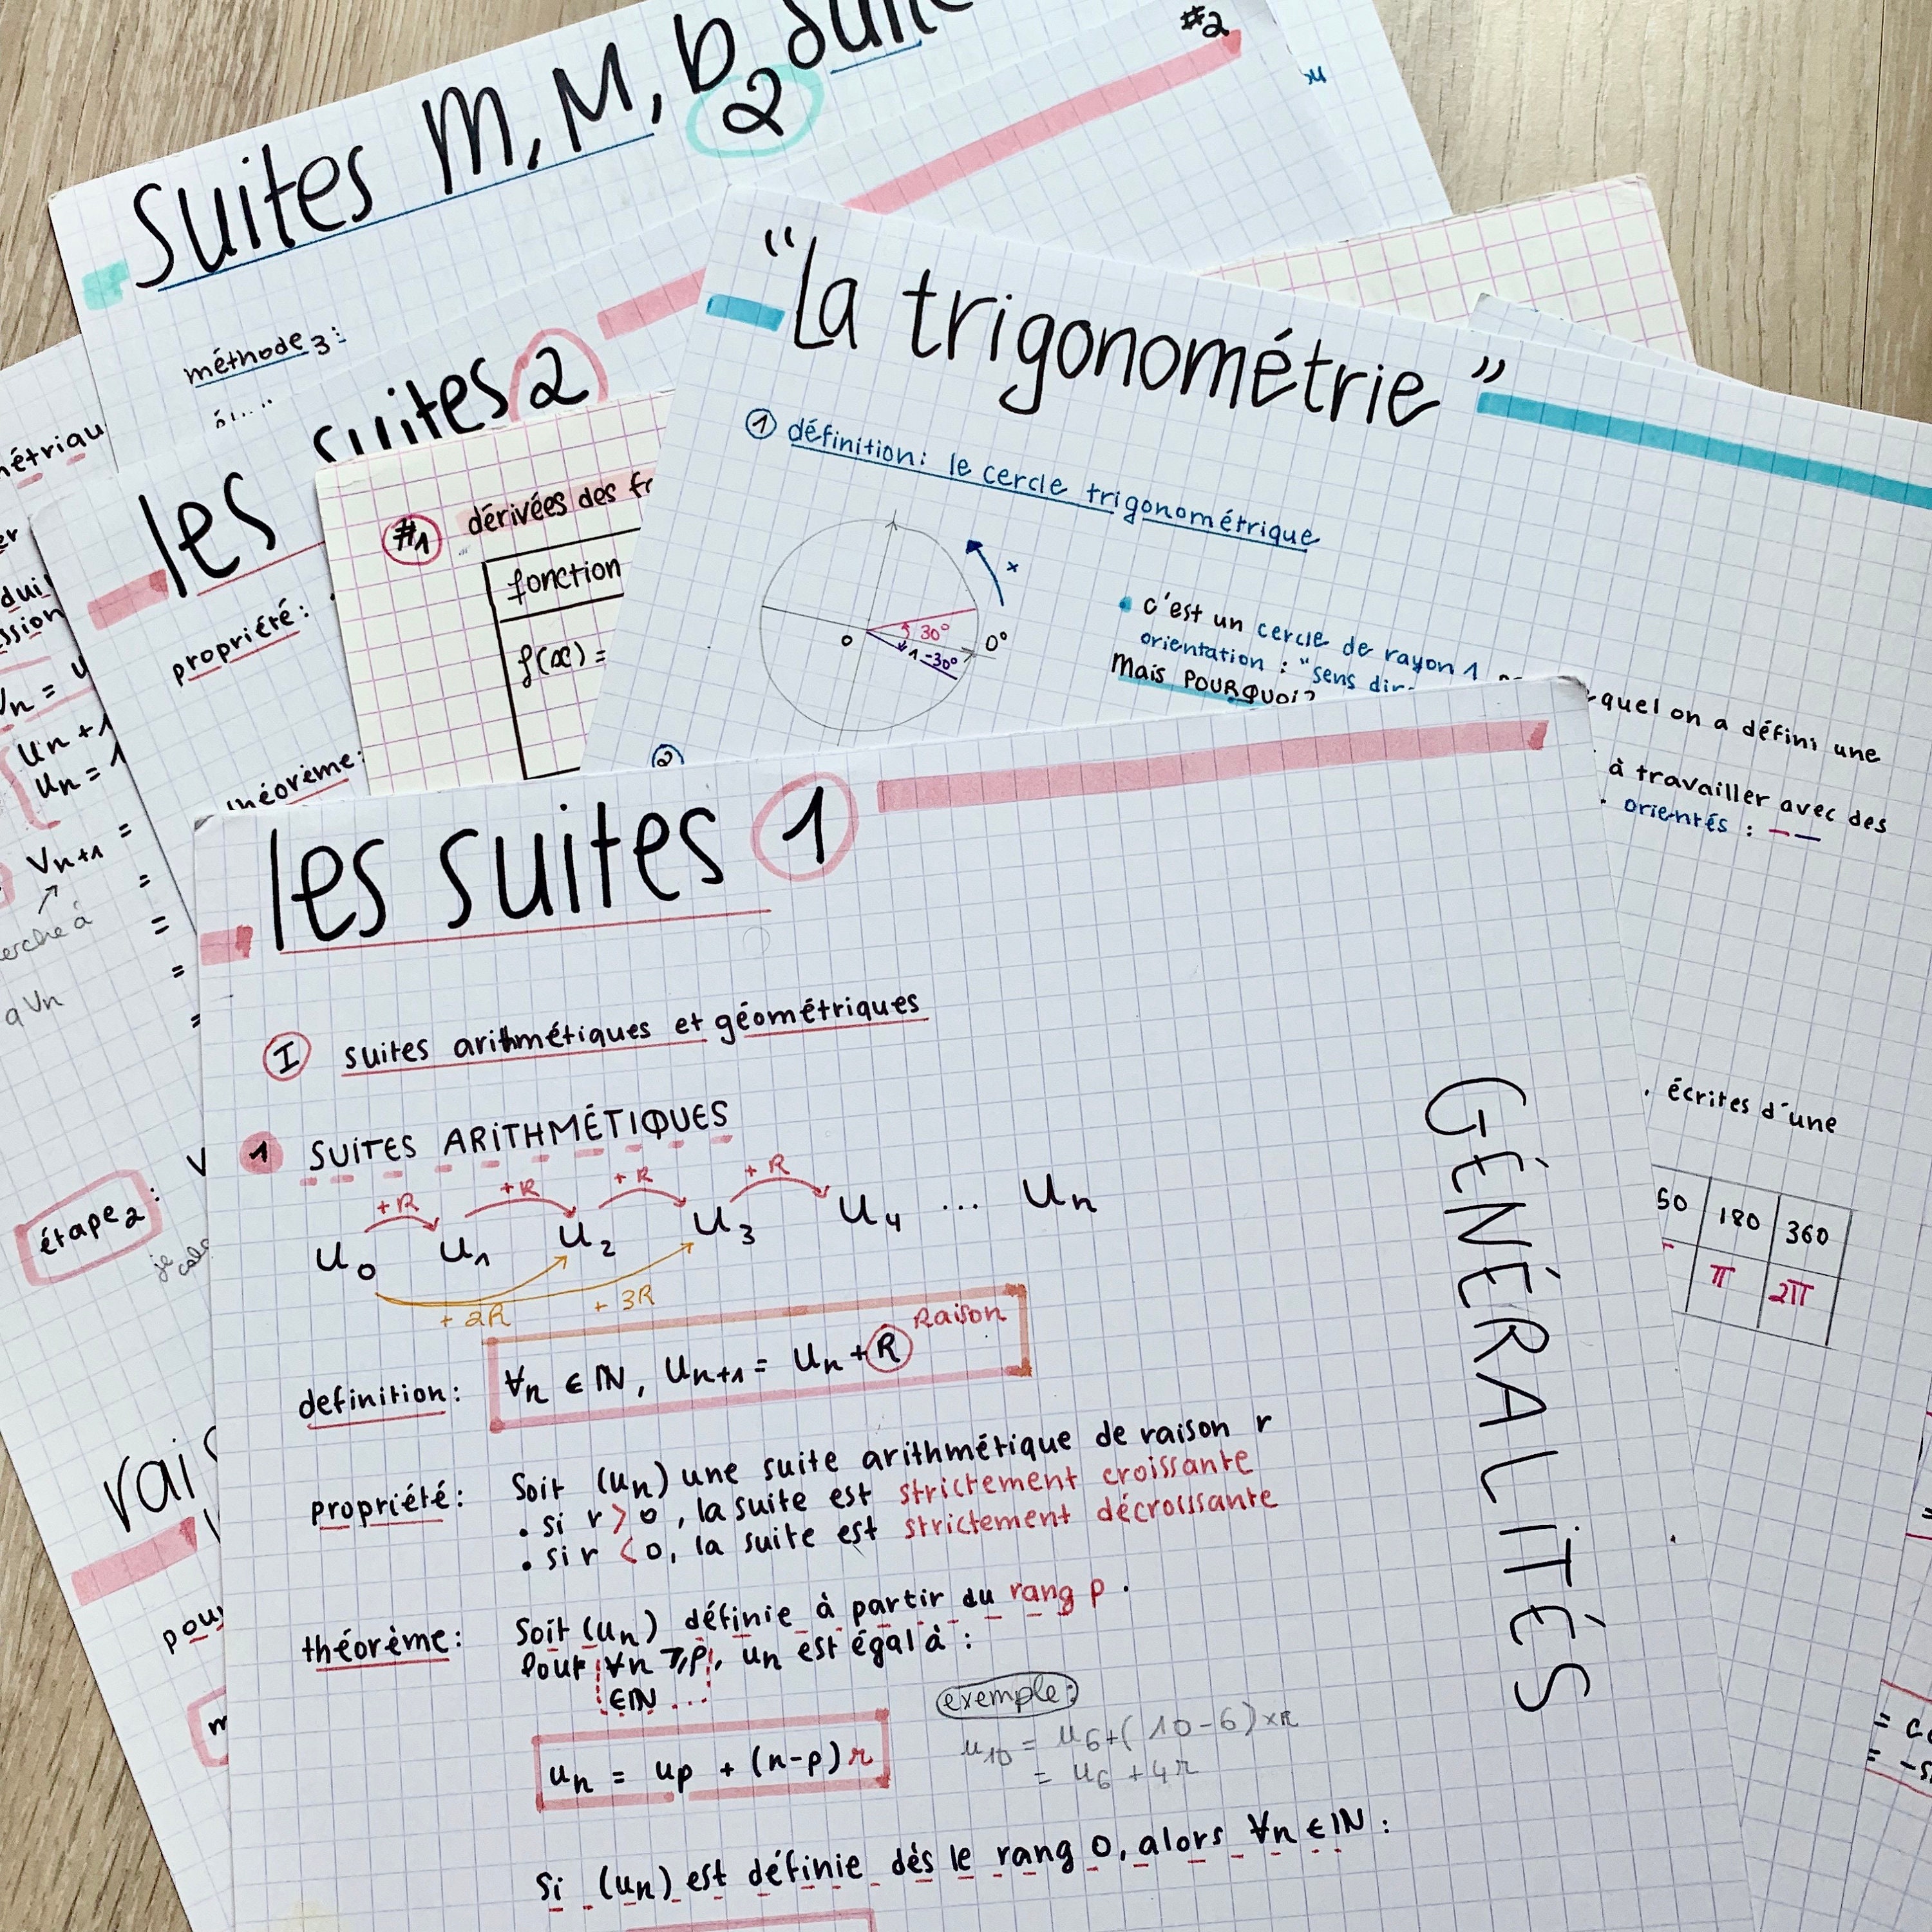 suites M, M, b
2
méthode 3:
#2
les suites 2
propriété:
théorème:
#1 dérivées des
fonction
f(x) =
"La trigonométrie"
① définition: le cercle trigonométrique
+
30°
-30°
0°
o
1
• c'est un cercle de rayon 1
quel on a défini une
orientation : "sens
Mais POURQUOI?
à travailler avec des
orientés : - -
②
écrites d'une
180 360
π 2π
Un+1
Un = 1
Vn+1 =
=
=
=
=
a Vn
étape 2 :
je
les suites 1
I suites arithmétiques et géométriques
1 SUITES ARITHMÉTIQUES
+R +R +R +R
U0 U1 U2 U3 U4 ... Un
+ 2R + 3R
definition: ∀n ∈ ℕ, Un+1 = Un + R Raison
propriété: Soit (un) une suite arithmétique de raison r
• si r > 0, la suite est strictement croissante
• si r < 0, la suite est strictement décroissante
théorème: Soit (un) définie à partir du rang p.
Pour ∀n ⩾ p, un est égal à :
∈ℕ ...
un = up + (n-p)r
exemple:
u10 = u6 + (10-6)×r
= u6 + 4r
Si (un) est définie dès le rang 0, alors ∀n ∈ ℕ :
GÉNÉRALITÉS